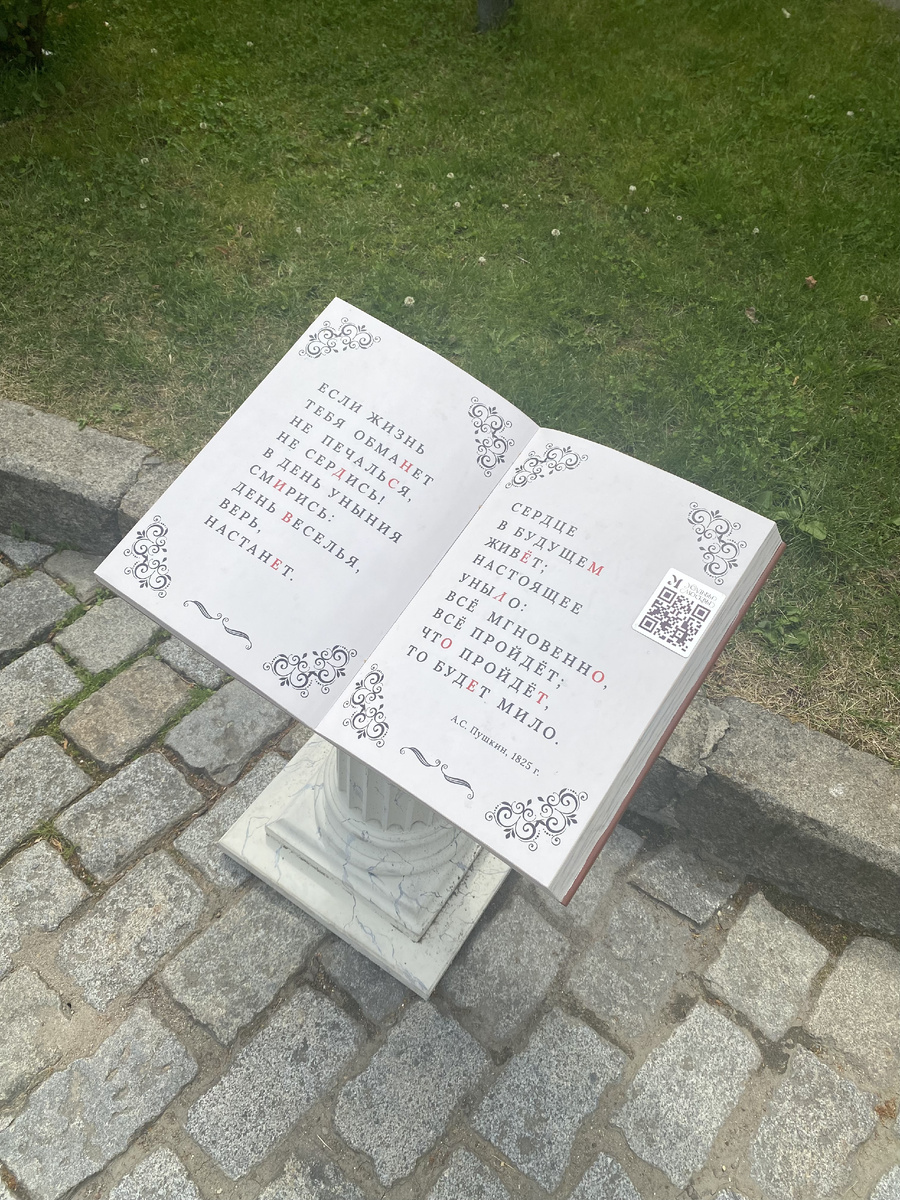 ЕСЛИ ЖИЗНЬ
ТЕБЯ ОБМАНЕТ
НЕ ПЕЧАЛЬСЯ,
НЕ СЕРДИСЬ!
В ДЕНЬ УНЫНИЯ
СМИРИСЬ:
ДЕНЬ ВЕСЕЛЬЯ,
ВЕРЬ,
НАСТАНЕТ.
СЕРДЦЕ
В БУДУЩЕМ
ЖИВЁТ;
НАСТОЯЩЕЕ
УНЫЛО:
ВСЁ МГНОВЕННО,
ВСЁ ПРОЙДЁТ:
ЧТО ПРОЙДЁТ,
ТО БУДЕТ МИЛО.
А.С. Пушкин, 1825 г.